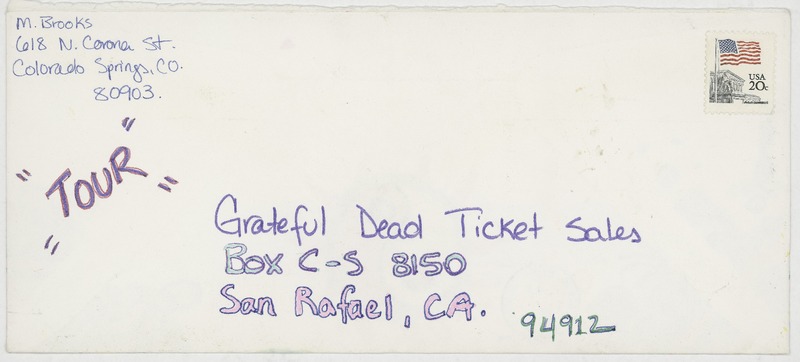 M. Brooks
618 N. Corona St.
Colorado Springs, CO.
80903.
USA
20c
"TOUR"
Grateful Dead Ticket Sales
Box C-S 8150
San Rafael, CA.
94912